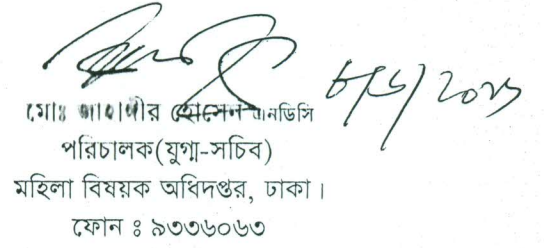 মোঃ জাহাঙ্গীর হোসেন এনডিসি
পরিচালক(যুগ্ম-সচিব)
মহিলা বিষয়ক অধিদপ্তর, ঢাকা।
ফোন ঃ ৯৩৩৬০৬৩